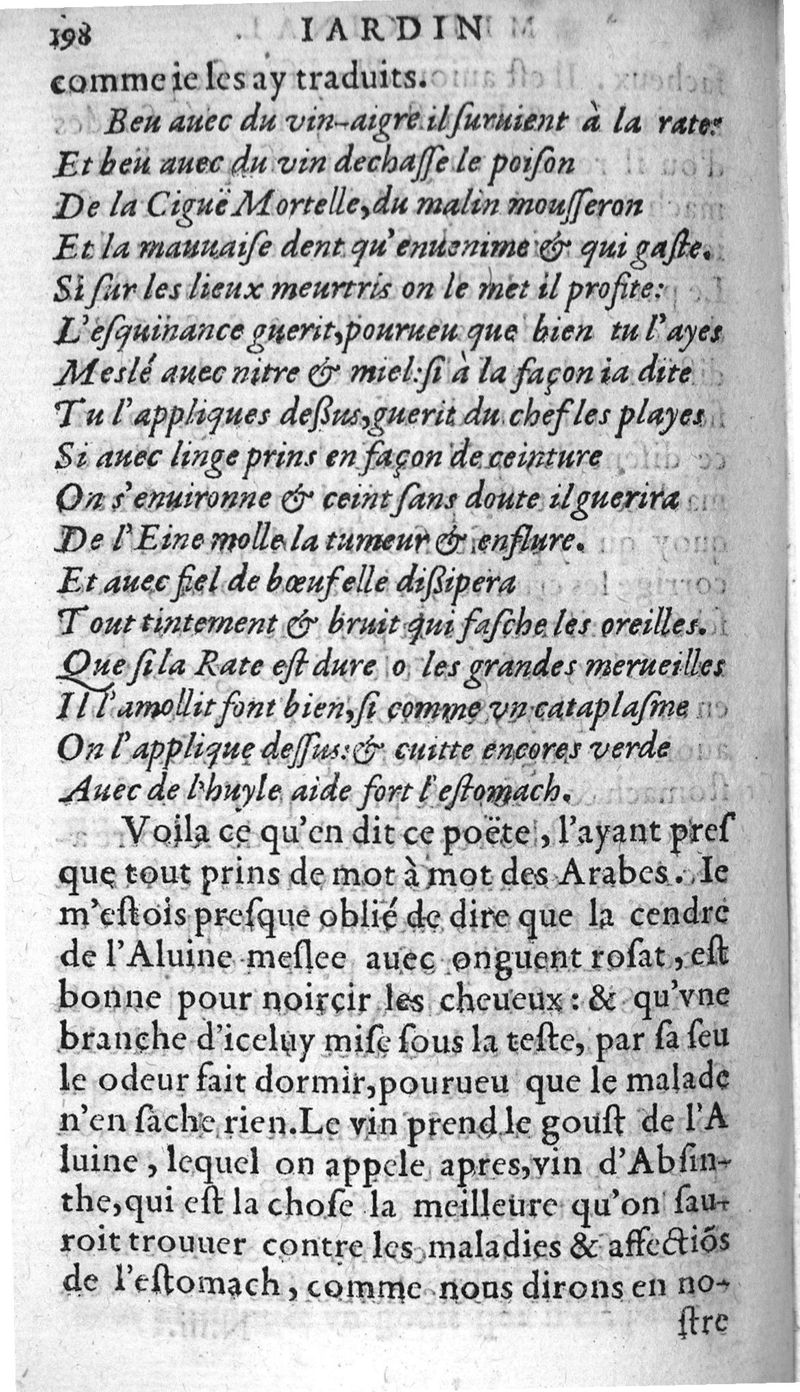 198 IARDIN
comme ie les ay traduits.
Beu auec du vin-aigre il ſuruient à la rate:
Et beu auec du vin dechaſſe le poiſon
De la Ciguë Mortelle, du malin mouſſeron
Et la mauuaiſe dent qu'enuenime & qui gaſte.
Si ſur les lieux meurtris on le met il profite:
L'eſquinance guerit, pourueu que bien tu l'ayes
Meslé auec nitre & miel: ſi à la façon ia dite
Tu l'appliques deßus, guerit du chef les playes
Si auec linge prins en façon de ceinture
On s'enuironne & ceint ſans doute il guerira
De l'Eine molle la tumeur & enflure.
Et auec fiel de bœuf elle dißipera
Tout tintement & bruit qui faſche les oreilles.
Que ſi la Rate eſt dure o les grandes merueilles
Il l'amollit font bien, ſi comme vn cataplaſme
On l'applique deſſus: & cuitte encores verde
Auec de l'huyle aide fort l'eſtomach.
Voila ce qu'en dit ce poëte, l'ayant preſ
que tout prins de mot à mot des Arabes. Ie
m'eſtois preſque oblié de dire que la cendre
de l'Aluine meſlee auec onguent roſat, eſt
bonne pour noircir les cheueux: & qu'vne
branche d'iceluy miſe ſous la teſte, par ſa ſeu
le odeur fait dormir, pourueu que le malade
n'en ſache rien. Le vin prend le gouſt de l'A
luine, lequel on appele apres, vin d'Abſin-
the, qui eſt la choſe la meilleure qu'on ſau-
roit trouuer contre les maladies & affectiõs
de l'eſtomach, comme nous dirons en no-
ſtre